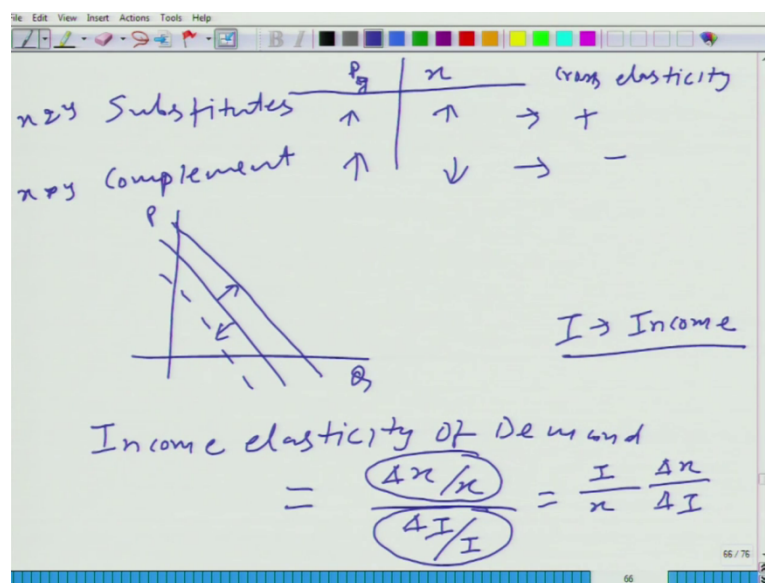 File Edit View Insert Actions Tools Help
B I
P_y x Cross elasticity
x & y Substitutes ↑ ↑ → +
x & y Complement ↑ ↓ → -
P
Q
I → Income
Income elasticity Of Demand
= (Δx/x)/(ΔI/I) = I/x Δx/ΔI
66 / 76
66